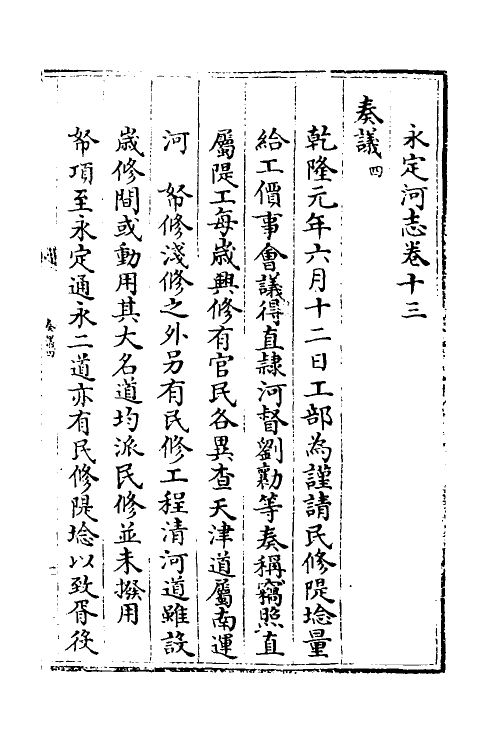 永定河志卷十三
奏議四
乾隆元年六月十二日工部為謹請民修隄埝量
給工價事會議得直隸河督劉勷等奏稱竊照直
屬隄工每歲興修有官民各異查天津道屬南運
河 帑修淺修之外另有民修工程清河道雖設
歲修間或動用其大名道均派民修並未撥用
帑項至永定通永二道亦有民修隄埝以致胥役
奏議四